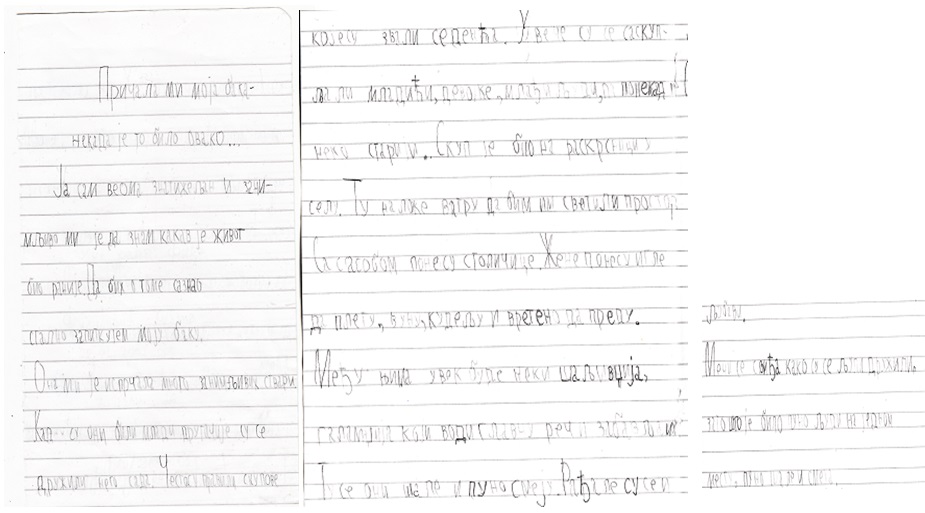 Причала ми моја бака-
некада је то било овако...
Ја сам веома знатижељан и зани-
мљиво ми је да знам какав је живот
био раније. Да бих о томе сазнао
стално запиткујем моју баку.
Она ми је испричала много занимљивих ствари
Кад су они били млади другачије су се
дружили него сада. Често правили скупове
којесу звали седењћа. Увече су се саскуп-
љали младићи, девојке, млађи људи, понекад и
неко старији. Скуп је био на раскрсници у
селу. Ту наложе ватру да би им светлили простор
Са сасобом понесу столичице. Жене понесу игле
да плету, вуну, кудељу и вретено да преду.
Међу њима увек буде неки шаљивџија,
галамџија који води главну реч и
Ту се они шале и пуно смеју. Рађале су се и
љубави.
Мени се свиђа како су се људи дружили
зато што је било пуно људи на једном
месту, пуно шале и смеха.